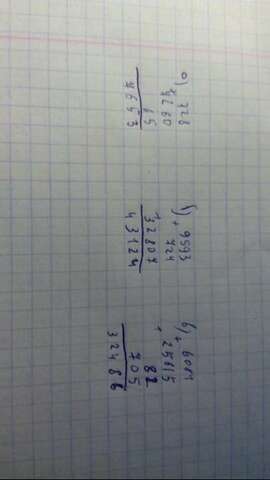 а) 328
+ 4260
65
4653
б) + 9593
724
32807
43124
в) + 6084
+ 25615
82
705
32486